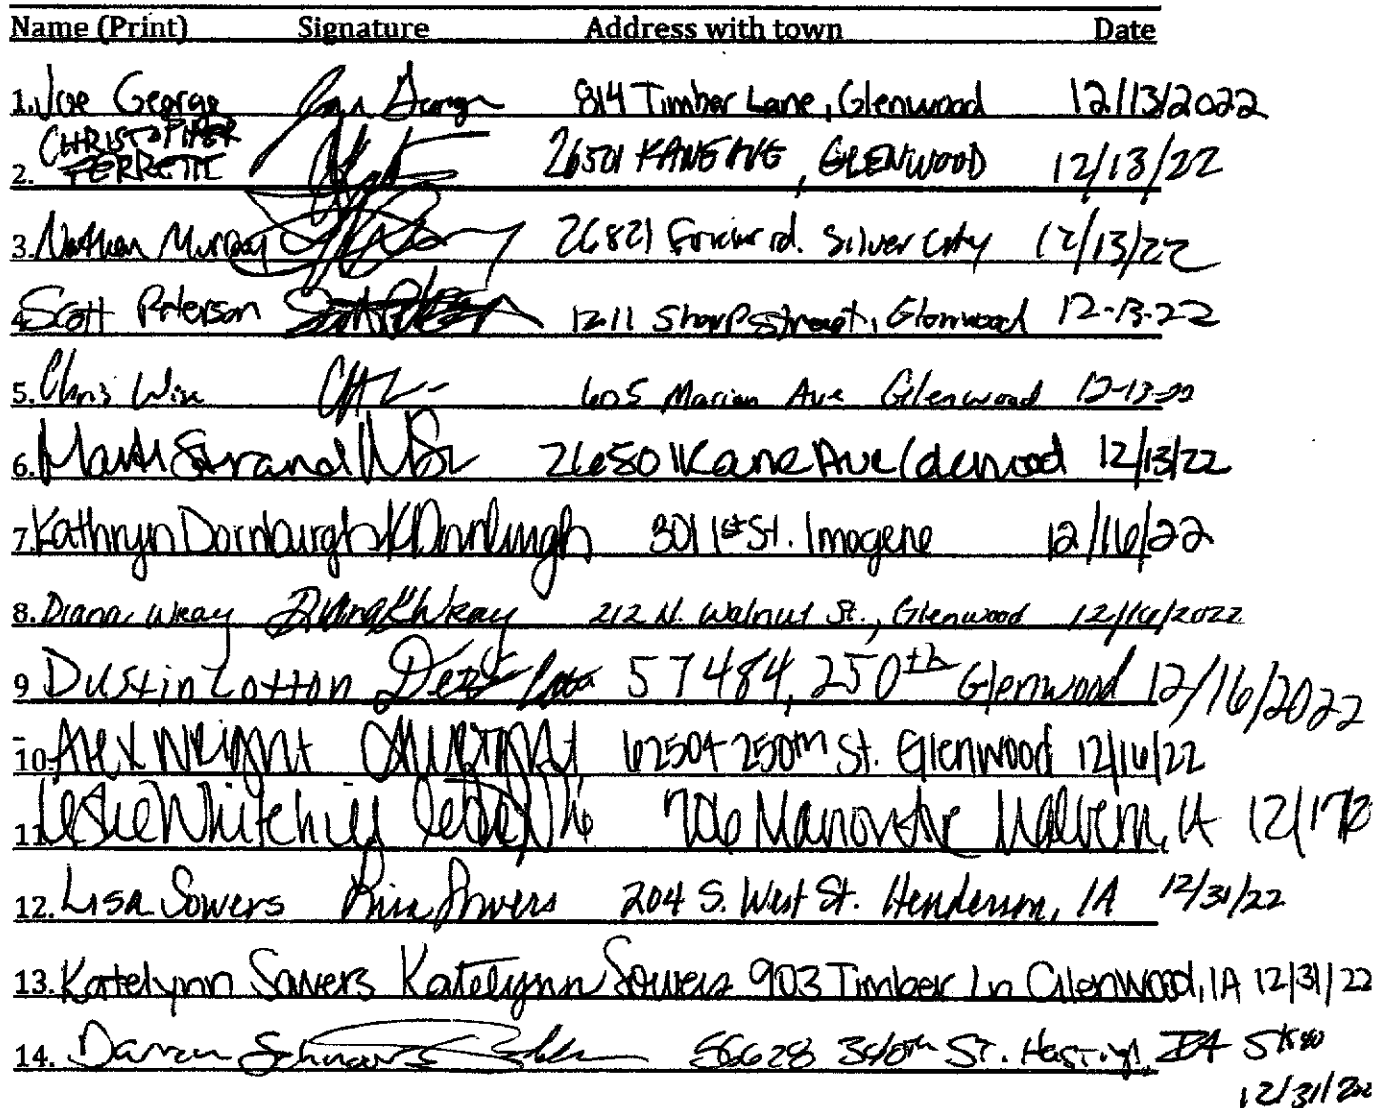 Name (Print) Signature Address with town Date
1. Joe George Joe George 814 Timber Lane, Glenwood 12/13/2022
2. CHRISTOPHER PERRETTE 26501 KANE AVE, GLENWOOD 12/13/22
3. Nathan Murray 26821 rd. Silver City 12/13/22
4. Scott Peterson 1211 Sharp street, Glenwood 12-13-22
5. Chris Wise 605 Marian Ave Glenwood 12-13-22
6. Mark Strand 26580 Kane Ave Glenwood 12/13/22
7. Kathryn Dornburgh K Dornburgh 301 1st St. Imogene 12/16/22
8. Diana Wray Diana K Wray 212 N. Walnut St., Glenwood 12/16/2022
9 Dustin Lotton 57484, 250th Glenwood 12/16/2022
10. Alex Wright 62504 250th St. Glenwood 12/16/22
11. Leslie Whitehill 706 Manor Ave Malvern, IA 12/17/2
12. Lisa Sowers Lisa Sowers 204 S. West St. Henderson, IA 12/31/22
13. Katelynn Sowers Katelynn Sowers 903 Timber Ln Glenwood, IA 12/31/22
14. Darren 56628 340th ST. Hastings, IA
12/31/202